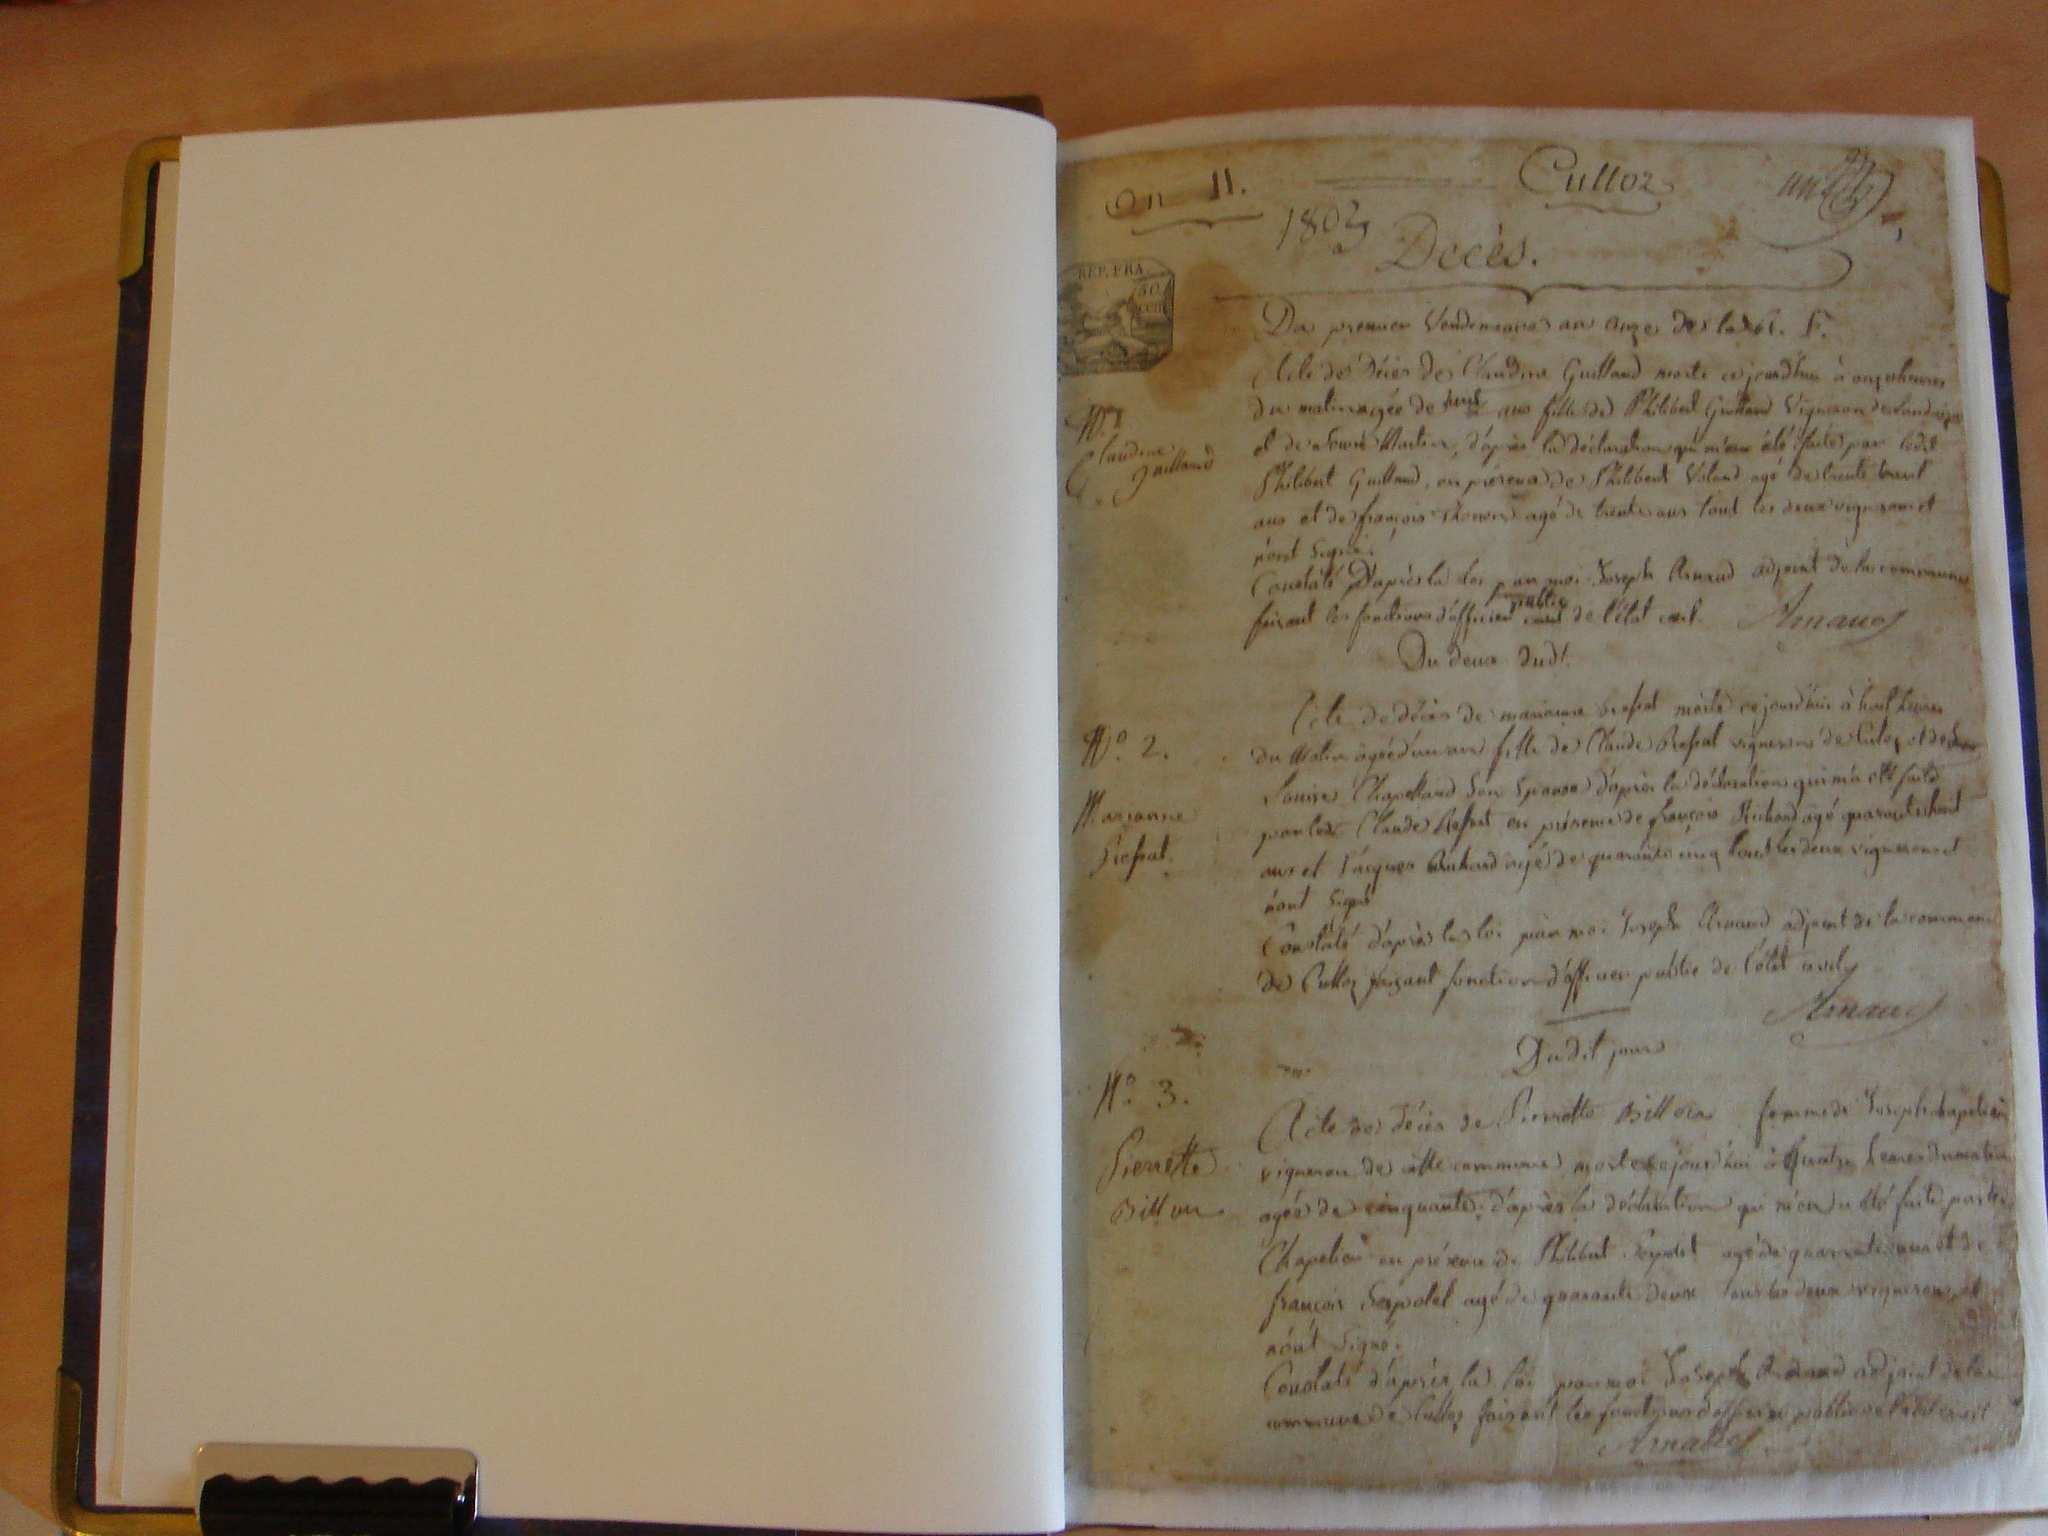 an 11. Culloz un
1803
Décès.
REP. FRA.
50
cent
Du premier Vendemiaire an onze de la F.
N.o 1
Claudine Guilland
Acte de décès de Claudine Guilland morte cejourdhui à onze heures
du matin agée de ans fille de Philibert Guilland Vigneron de
et de Martin, d'après la déclaration qui m'en a été faite par ledit
Philibert Guilland, en présence de Philibert Voland agé de trente huit
ans et de françois agé de trente ans tout les deux vignerons et
n'ont signé.
Constaté D'après la loi par moi Joseph Arnaud adjoint de la commune
faisant les fonctions d'officier public de l'état civil. Arnaud
Du deux dudt.
N.o 2.
Marianne
Acte de décès de marianne morte cejourdhui à huit heures
du Matin agée d'un an fille de Claude vigneron de Culoz et de
Louise Chapelland son Epouse d'après la déclaration qui m'a été faite
par ledt Claude en présence de françois Richard agé quarante huit
ans et Jacques Richard agé de quarante cinq tout les deux vignerons et
n'ont signé
Constaté d'après la loi par moi Joseph Arnaud adjoint de la commune
de Culloz faisant fonction d'officier public de l'état civil
Arnaud
Dudit jour
N.o 3.
Pierrette
Billon
Acte de décès de Pierrette Billon femme de Joseph
vigneron de cette commune morte cejourdhui à quatre heures du matin
agée de cinquante, d'après la déclaration qui m'en a été faite par
en présence de Philibert agé de quarante ans et de
françois agé de quarante deux tous les deux vignerons et
n'ont signé.
Constaté d'après la loi par moi Joseph Arnaud adjoint de la
commune de Culloz faisant les fonctions d'officier public de l'état civil
Arnaud